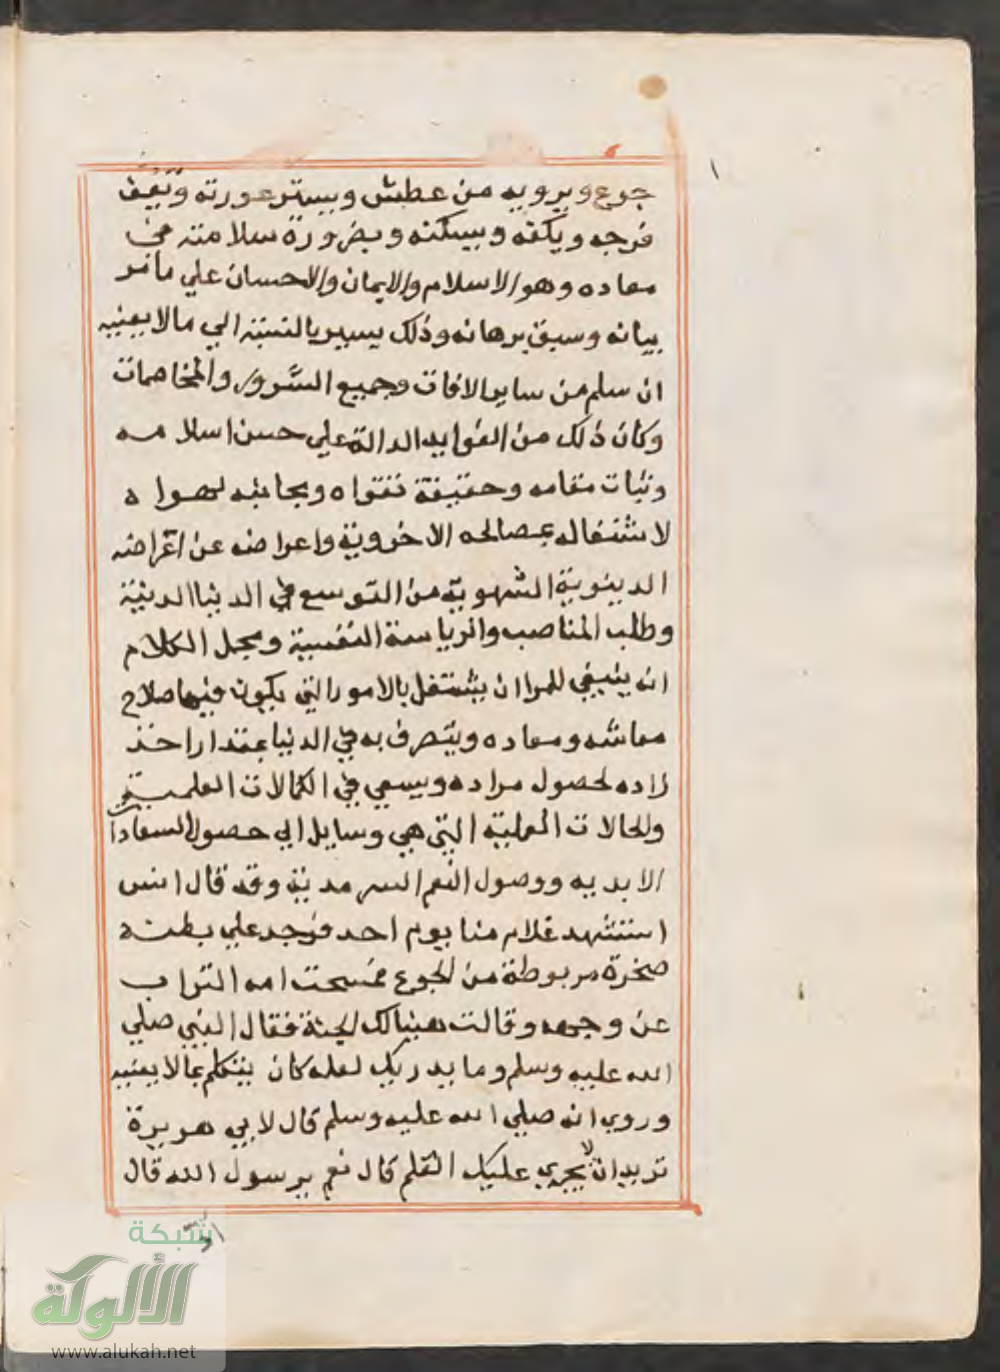 جوع ويرويه من عطش ويستر عورته ويعف
فرجه ويكفه ويسكنه وبضرورة سلامته في
معاده وهو الاسلام والايمان والاحسان علي ما مر
بيانه وسبق برهانه وذلك يسير بالنسبة الي ما لا يعنيه
ان سلم من ساير الافات وجميع الشرور والمخاصمات
وكان ذلك من الفوايد الدالة علي حسن اسلامه
وثبات مقامه وحقيقة تقواه ومجانبته لهواه
لاشتغاله بمصالحه الاخروية واعراضه عن اغراضه
الدينوية الشهوية من التوسع في الدنيا الدنية
وطلب المناصب والرياسة النفسية ومجمل الكلام
انه ينبغي للمرا ان يشتغل بالامور التي يكون فيها صلاح
معاشه ومعاده ويتصرف به في الدنيا بمقدار اخذ
زاده لحصول مراده ويسعي في الكمالات العلمية
والحالات العملية التي هي وسايل الي حصول السعادات
الابديه ووصول النعم السرمدية وقد قال انس
استشهد غلام منا يوم احد فوجد علي بطنه
صخرة مربوطة من الجوع فمسحت امه التراب
عن وجهه وقالت هنيا لك الجنة فقال النبي صلي
الله عليه وسلم وما يدريك لعله كان يتكلم بما لا يعنيه
وروي انه صلي الله عليه وسلم قال لابي هريرة
تريد ان لا يجري عليك القلم قال نعم يرسول الله قال
شبكة
الألوكة
www.alukah.net